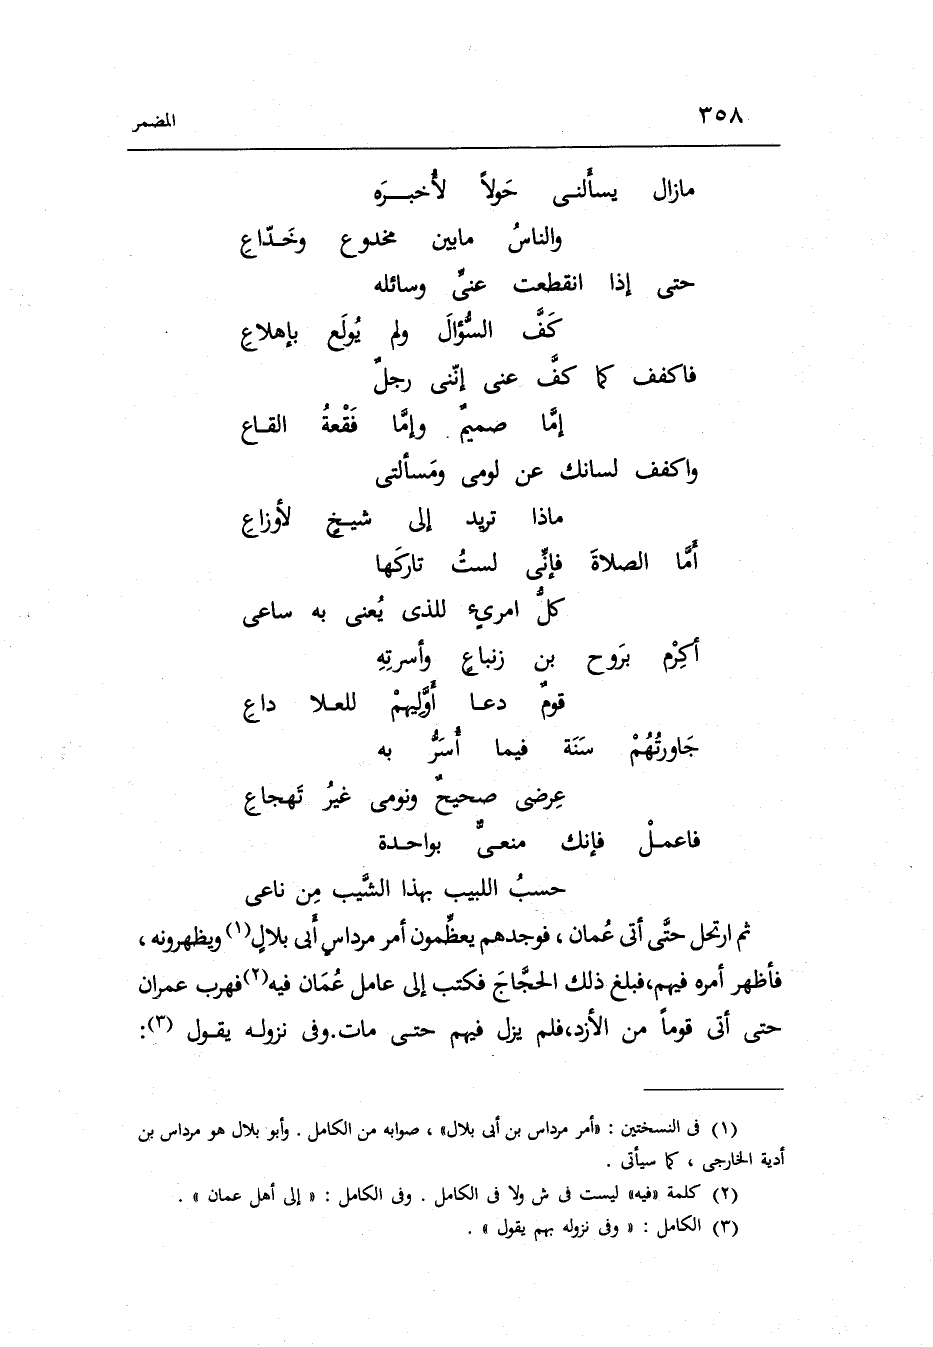 ٣٥٨
المضمر
مازال يسأَلنى حَولاً لأُخبـــرَه
والناسُ مابين مخدوع وخَـدّاعِ
حتى إذا انقطعت عنىِّ وسائله
كَفَّ السُّؤالَ ولم يُولَع بإهلاعِ
فاكفف كما كفَّ عنى إنّنى رجلٌ
إمَّا صميمٌ وإمَّا فَقْعةُ القـاع
واكفف لسانك عن لومى ومَسألتى
ماذا تريد إلى شيـخٍ لأوزاعِ
أَمَّا الصلاةَ فإنِّى لستُ تاركَها
كلُّ امرىٍء للذى يُعنى به ساعى
أكِرْم برَوح بن زنباعٍ وأسرتِهِ
قومٌ دعـا أَوَّلِيهمْ للعـلا داعِ
جَاورتُهُمْ سَنَة فيما أُسَرُّ به
عِرضى صحيحٌ ونومى غيرُ تَهجاعِ
فاعمـلْ فإنك منعىٌّ بواحـدة
حسبُ اللبيب بهذا الشَّيب مِن ناعى
ثم ارتحل حتَّى أتى عُمان ، فوجدهم يعظِّمون أمر مرداسٍ أَبى بلالٍ(١) ويظهرونه ،
فأظهر أمره فيهم،فبلغ ذلك الحجَّاجَ فكتب إلى عامل عُمَان فيه(٢)فهرب عمران
حتى أتى قوماً من الأزد،فلم يزل فيهم حتـى مات.وفى نزولـه يقـول (٣):
(١) فى النسختين : «أمر مرداس بن أبى بلال» ، صوابه من الكامل . وأبو بلال هو مرداس بن
أدية الخارجى ، كما سيأتى .
(٢) كلمة «فيه» ليست فى ش ولا فى الكامل . وفى الكامل : « إلى أهل عمان » .
(٣) الكامل : « وفى نزوله بهم يقول » .